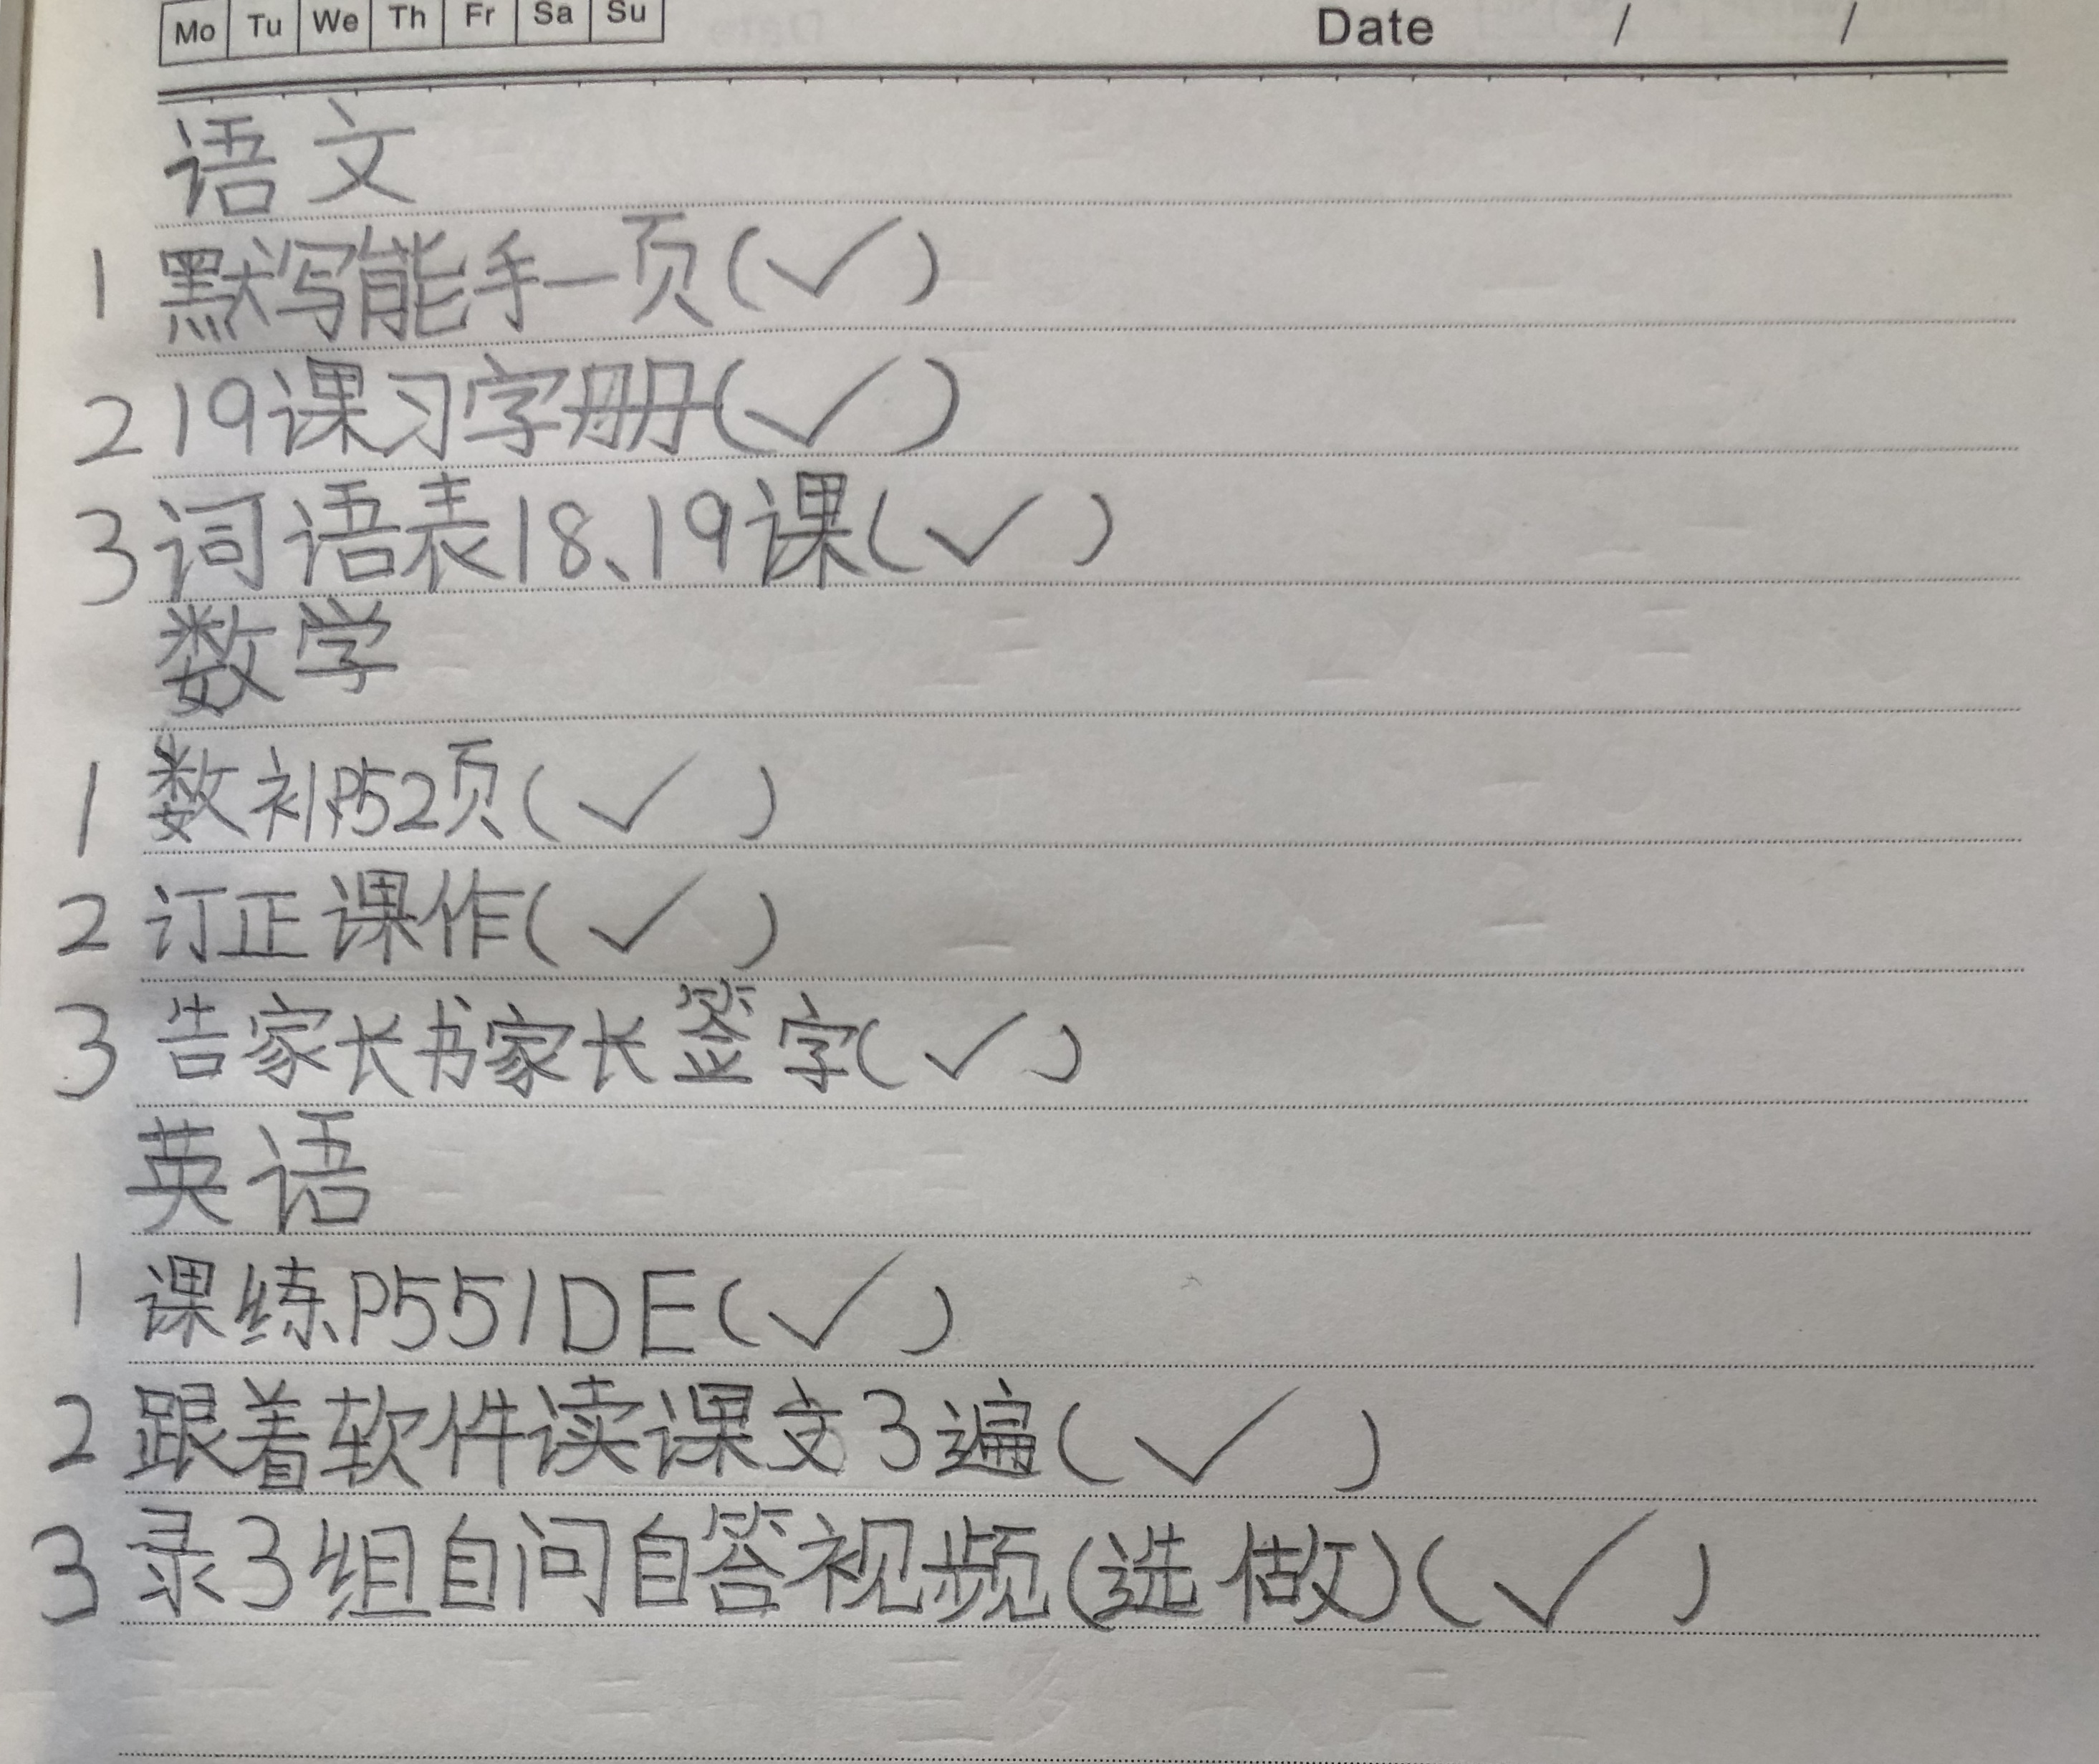 Mo Tu We Th Fr Sa Su Date / /
语文
1 默写能手一页(✓)
2 19课习字册(✓)
3 词语表18、19课(✓)
数学
1 数补P52页(✓)
2 订正课作(✓)
3 告家长书家长签字(✓)
英语
1 课练P551DE(✓)
2 跟着软件读课文3遍(✓)
3 录3组自问自答视频(选做)(✓)